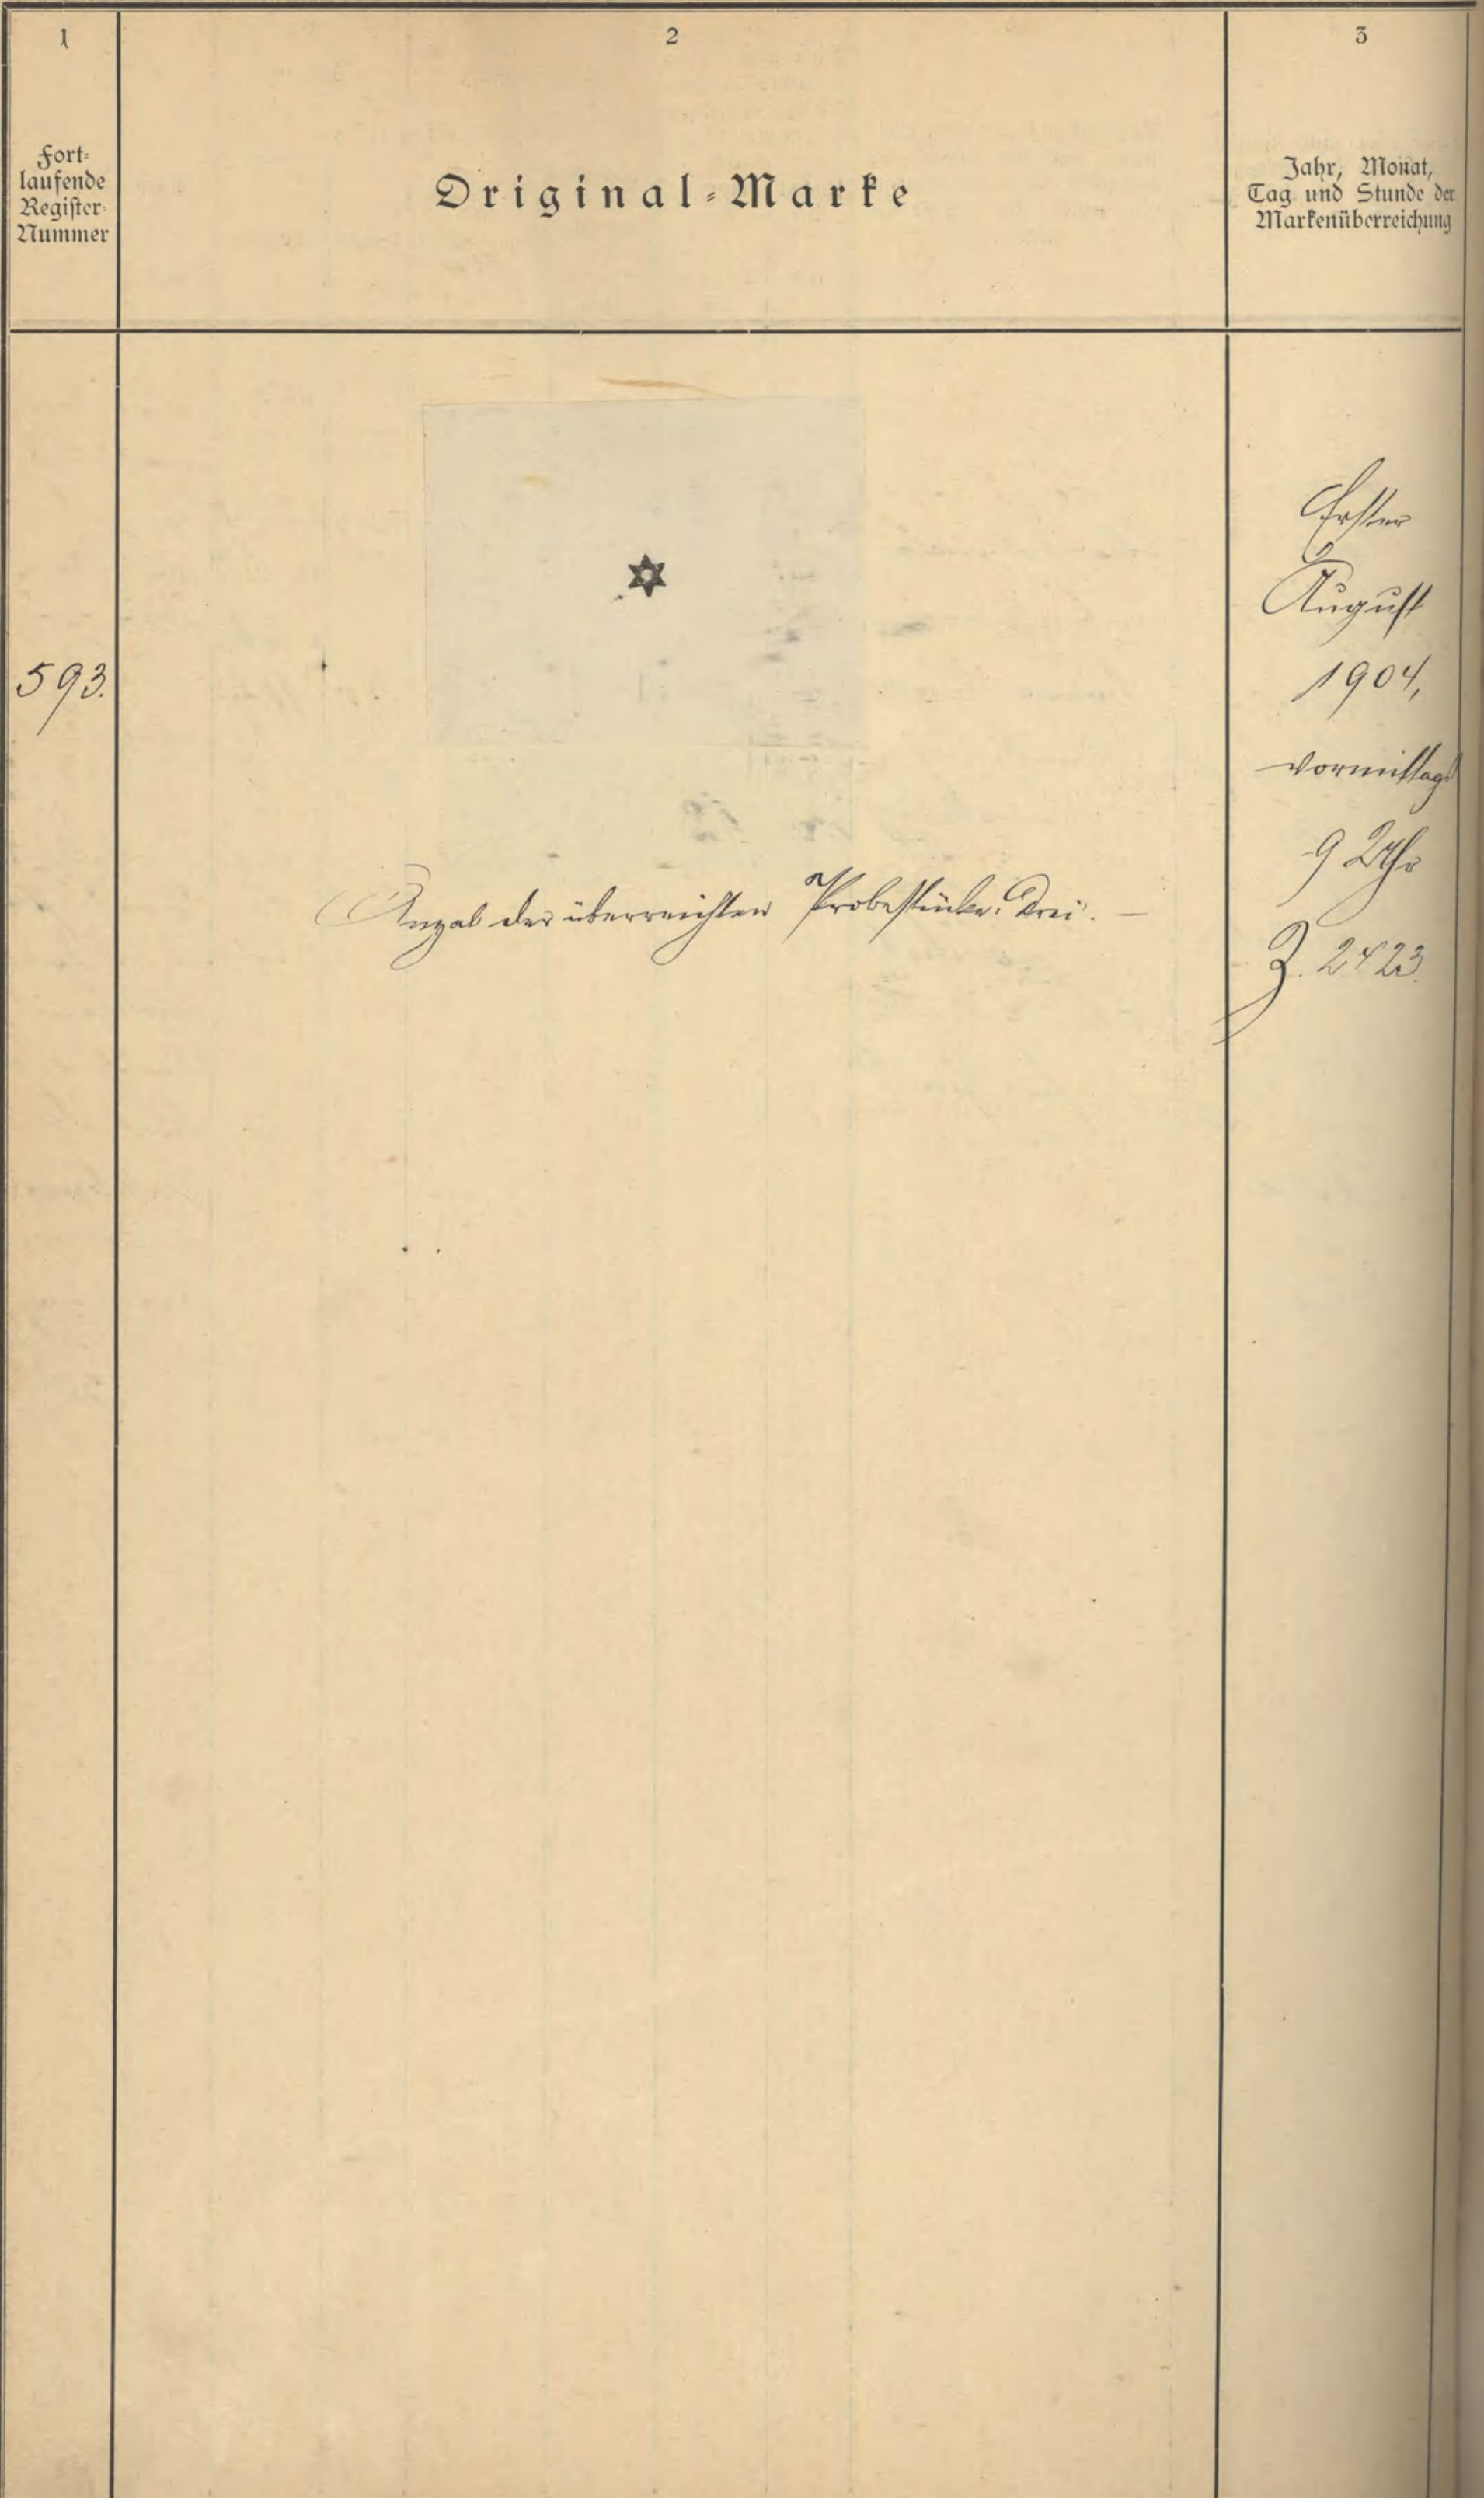 1
Fort-
laufende
Register-
Nummer
2
Original-Marke
3
Jahr, Monat,
Tag und Stunde der
Markenüberreichung
593.
Anzal der überreichten Probestücke: Drei. —
Erster
August
1904,
vormittags
9 Uhr
Z. 2423.